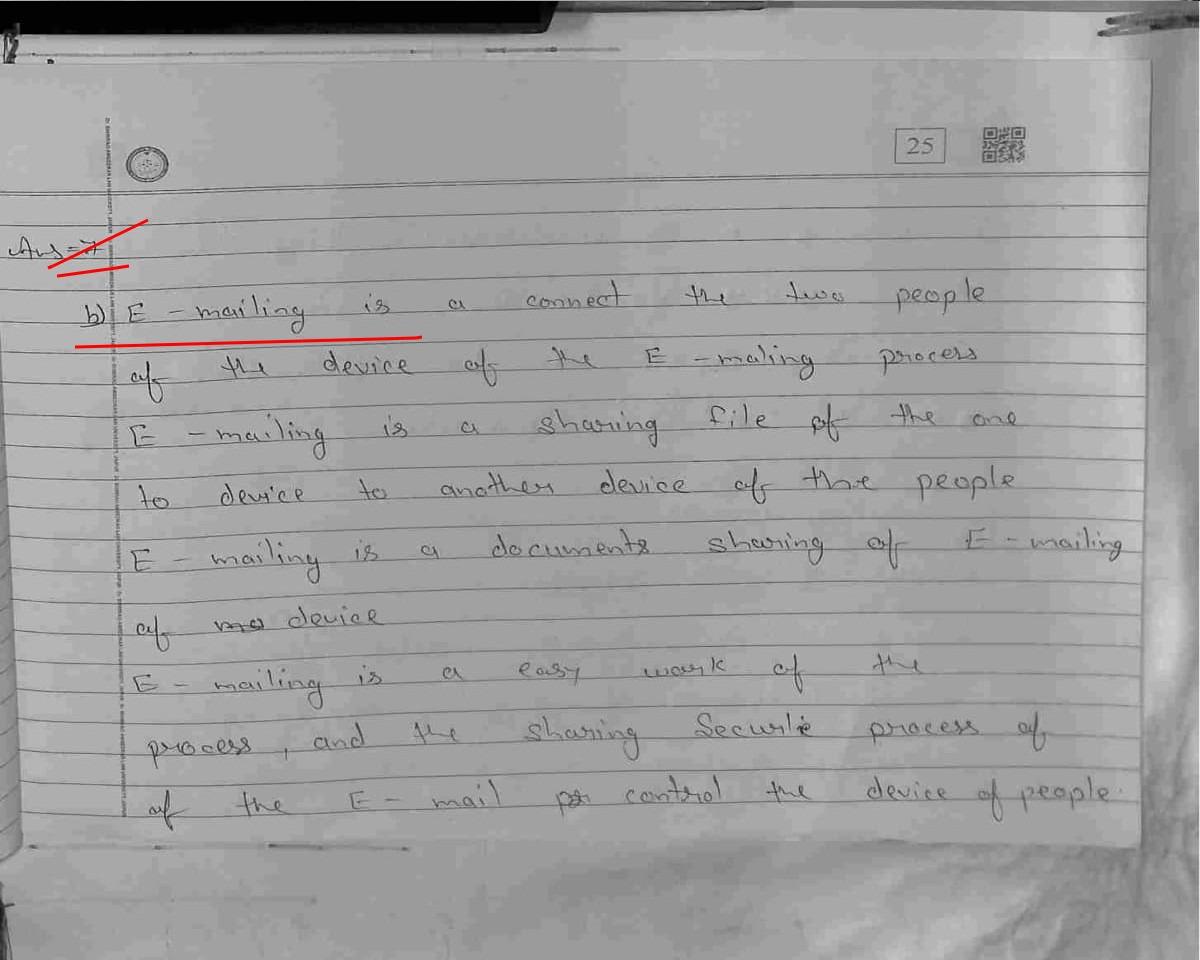 25
Ans=7
b) E-mailing is a connect the two people
of the device of the E-maling process
E-mailing is a sharing file of the one
to device to another device of the people
E-mailing is a documents sharing of E-mailing
of device
E-mailing is a easy work of the
process, and the sharing Securite process of
of the E-mail control the device of people.